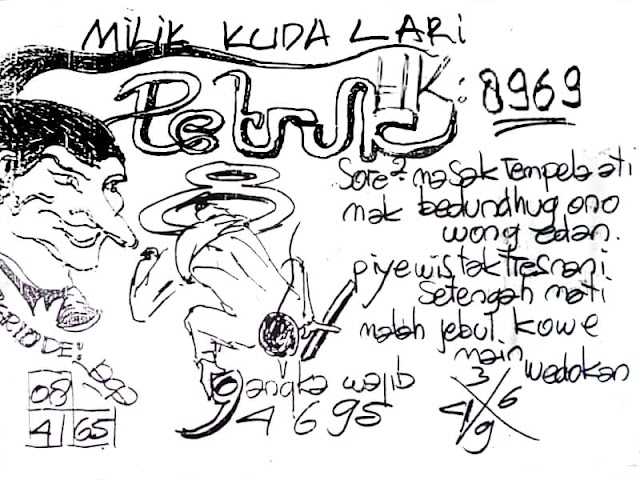 MILIK KUDA LARI
Petruk HK: 8969
Sore² masak tempela ati
mak bedundhug ono
wong edan.
piye wis tak tresnani
setengah mati
malah jebul kowe
main wedokan
PERIODE:
08
41 65
angka wajib
9 4 6 95
3
4 6
9